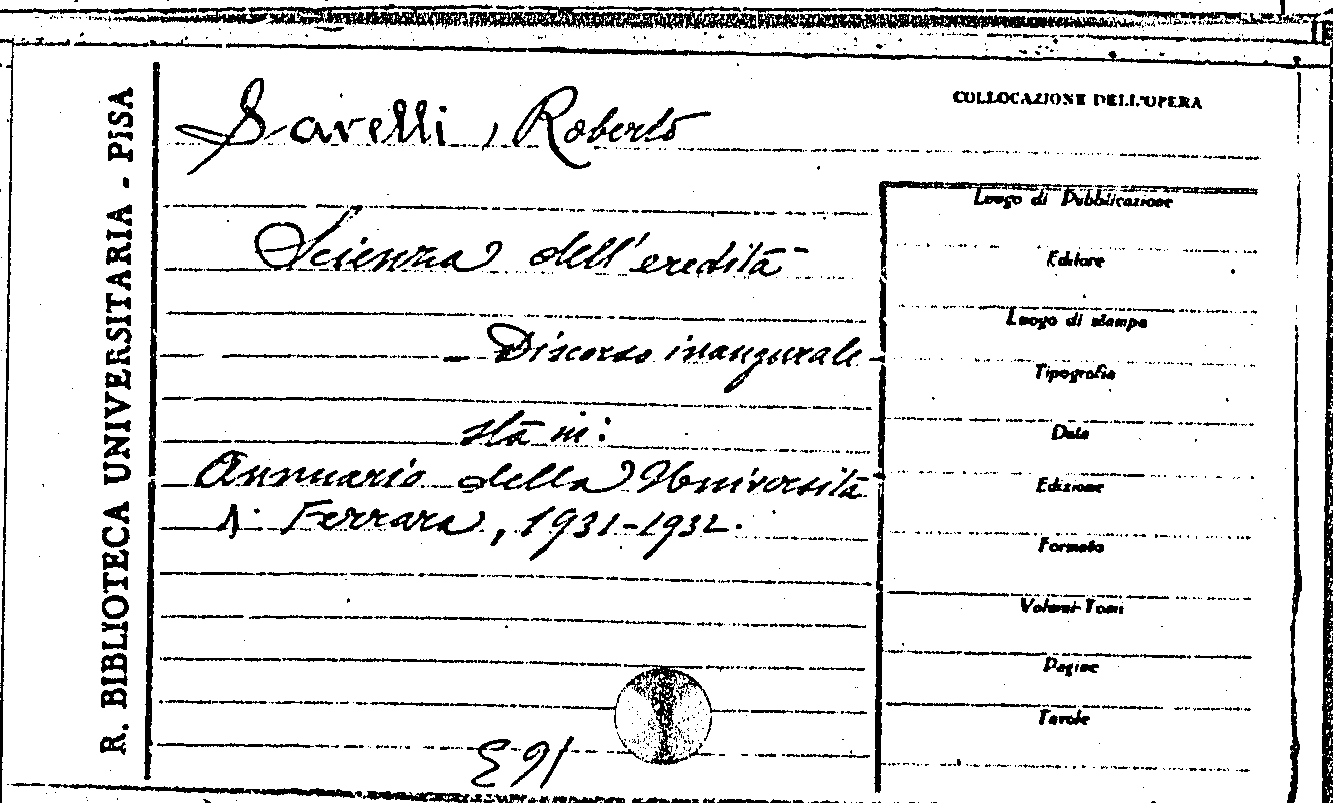 R. BIBLIOTECA UNIVERSITARIA - PISA
Savelli, Roberto
Scienza dell'eredità
- Discorso inaugurale -
sta in:
Annuario della Università
di Ferrara, 1931-1932.
COLLOCAZIONE DELL'OPERA
Luogo di Pubblicazione
Editore
Luogo di stampa
Tipografia
Data
Edizione
Formato
Volumi-Tomi
Pagine
Tavole